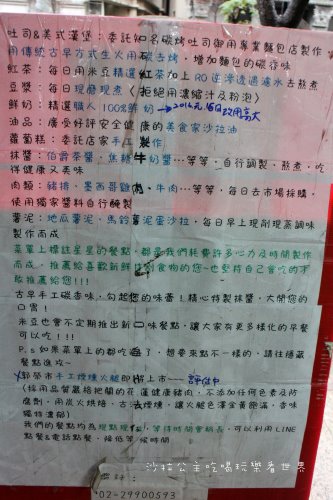 吐司&美式漢堡:委託知名碳烤吐司御用專業麵包店製作
用傳統古早方式生火用碳去烤,增加麵包的碳香味
紅茶:每日用米豆精選紅茶加上RO逆滲透過濾水去熬煮
豆漿:每日現磨現煮(拒絕用濃縮汁及粉泡)
鮮奶:精選職人100%鮮奶
油品:廣受好評安全健康的美食家沙拉油
蘿蔔糕:委託店家手工製作
抹醬:伯爵茶醬、焦糖牛奶醬…等等,自行調製、熬煮,吃
得健康又美味
肉類:豬排、墨西哥雞肉、牛肉…等等,每日去市場採購,
使用獨家醬料自行醃製
薯泥:地瓜薯泥、馬鈴薯泥蛋沙拉,每日早上現削現蒸調味
製作而成
菜單上標註星星的餐點,都是我們耗費許多心力及時間製作
而成,推薦給喜歡新鮮性創食物的您,也堅持自己會吃的才
敢推薦給您!!!
古早手工碳香味,勾起您的味蕾!精心特製抹醬,大開您的
口胃!
米豆也會不定期推出新口味餐點,讓大家有更多樣化的早餐
可以吃!!!
P.s如果菜單上的都吃過了,想要來點不一樣的,請往隱藏
餐點進攻~
手工煙燻火腿即將上市
(採用品質嚴格把關的花蓮健康豬肉,不添加任何色素及防
腐劑,用炭火烘焙、古法煙燻,讓火腿色澤金黃飽滿,香味
獨特濃郁)
我們的餐點均為現點現做,等待時間會稍長,可以利用LINE
點餐&電話點餐,降低等候時間
02-29900593
沙拉公主吃喝玩樂看世界